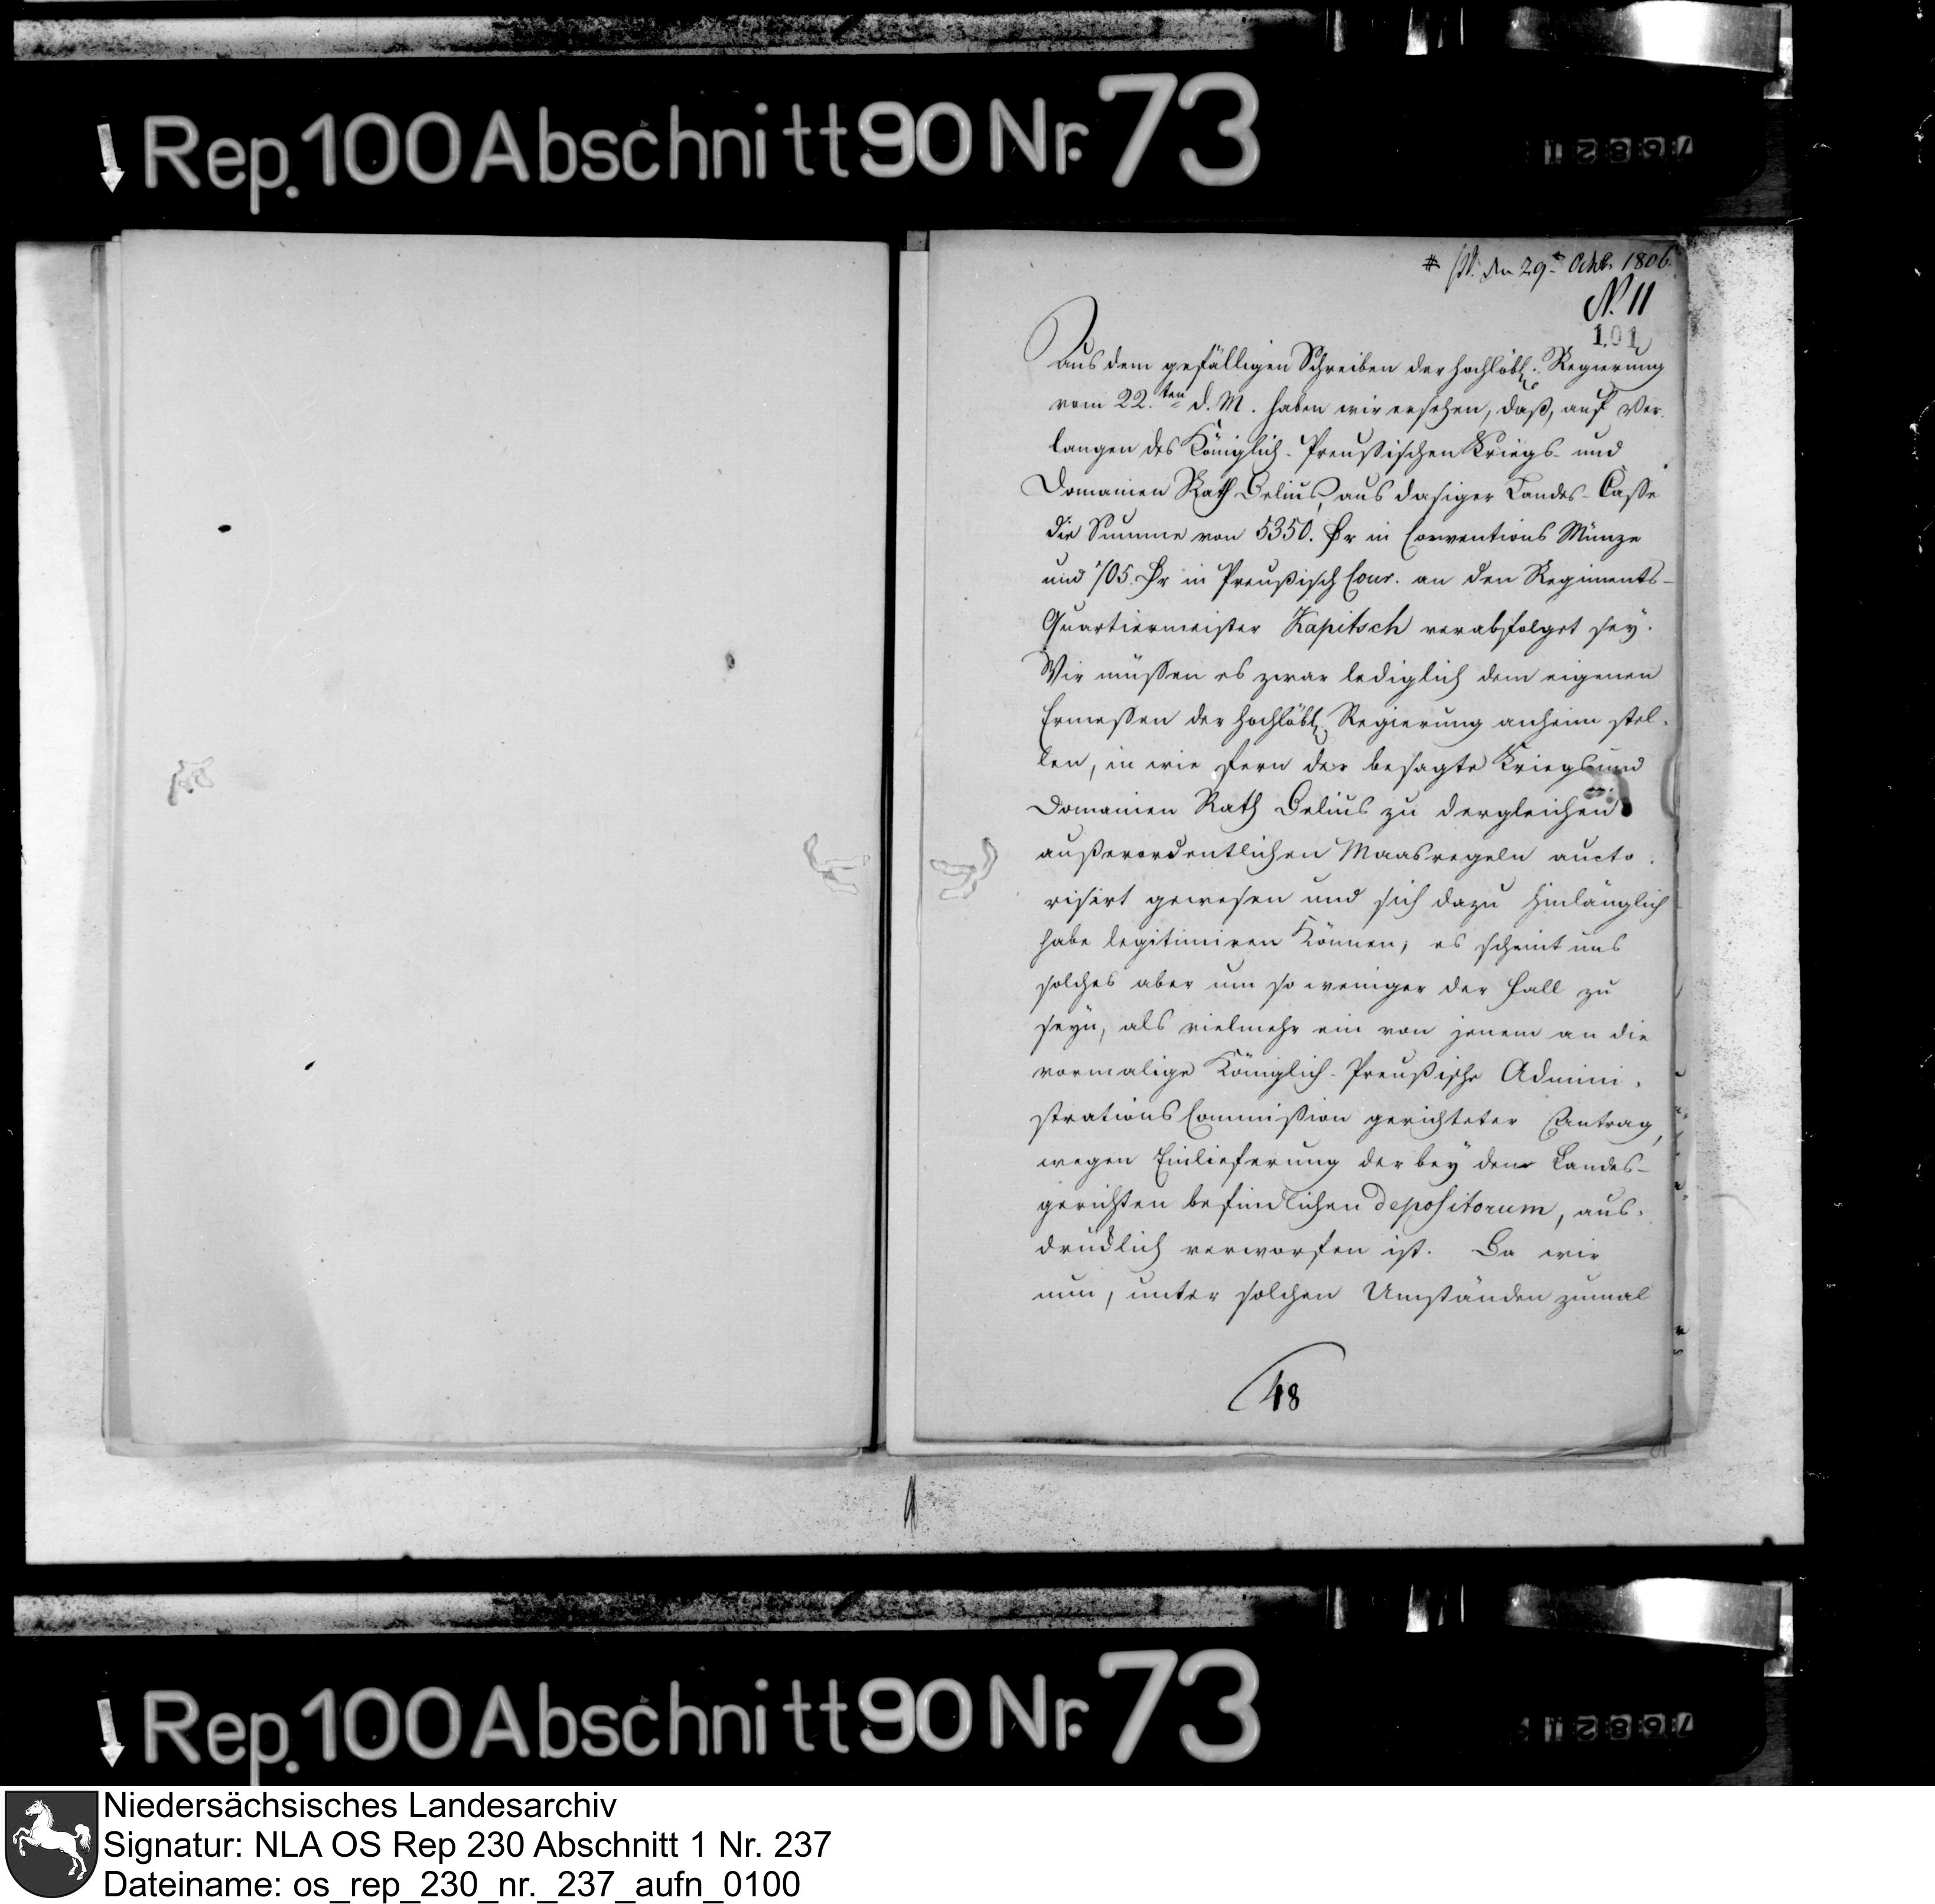 Rep. 100 Abschnitt 90 Nr. 73
den 29t. Octbr. 1806.
N. 11
101
Aus dem gefälligen Schreiben der hochlöbl. Regierung
vom 22.ten d. M. haben wir ersehen, daß, auf Ver-
langen des Königlich-Preußischen Kriegs- und
Domainen Rath Delius, aus dasiger Landes-Casse
die Summe von 5350. Rr in Conventions Münze
und 705. Rr in Preußisch Cour. an den Regiments-
Quartiermeister Kapitsch verabfolget sey.
Wir müssen es zwar lediglich dem eigenen
Ermessen der hochlöbl. Regierung anheim stel-
len, in wie fern der besagte Kriegs und
Domainen Rath Delius zu dergleichen
außerordentlichen Maasregeln aucto-
risirt gewesen und sich dazu hinlänglich
habe legitimiren können; es scheint uns
solches aber um so weniger der Fall zu
seyn, als vielmehr ein von jenem an die
vormalige Königlich-Preußische Admini-
strations Commission gerichteter Antrag,
wegen Einlieferung der bey den Landes-
gerichten befindlichen Depositorum, aus-
drücklich verworfen ist. Da wir
nun, unter solchen Umständen zumal
48
Rep. 100 Abschnitt 90 Nr. 73
Niedersächsisches Landesarchiv
Signatur: NLA OS Rep 230 Abschnitt 1 Nr. 237
Dateiname: os_rep_230_nr._237_aufn_0100